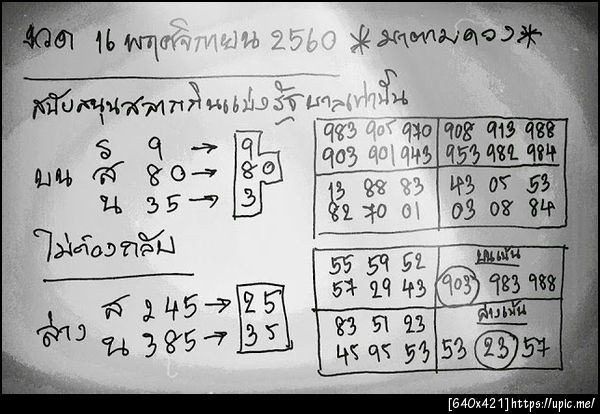 งวด 16 พฤศจิกายน 2560 *มาตามดวง*
สนับสนุนสลากกินแบ่งรัฐบาลเท่านั้น
บน
ร 9 → 9
ส 80 → 80
น 35 → 3
ไม่ต้องกลับ
ล่าง
ส 245 → 25
น 385 → 35
983 905 970 908 913 988
903 901 943 953 982 984
13 88 83 43 05 53
82 70 01 03 08 84
55 59 52 บนเน้น
57 29 43 903 983 988
83 51 23 ล่างเน้น
45 95 53 53 23 57
[640x421]https://upic.me/